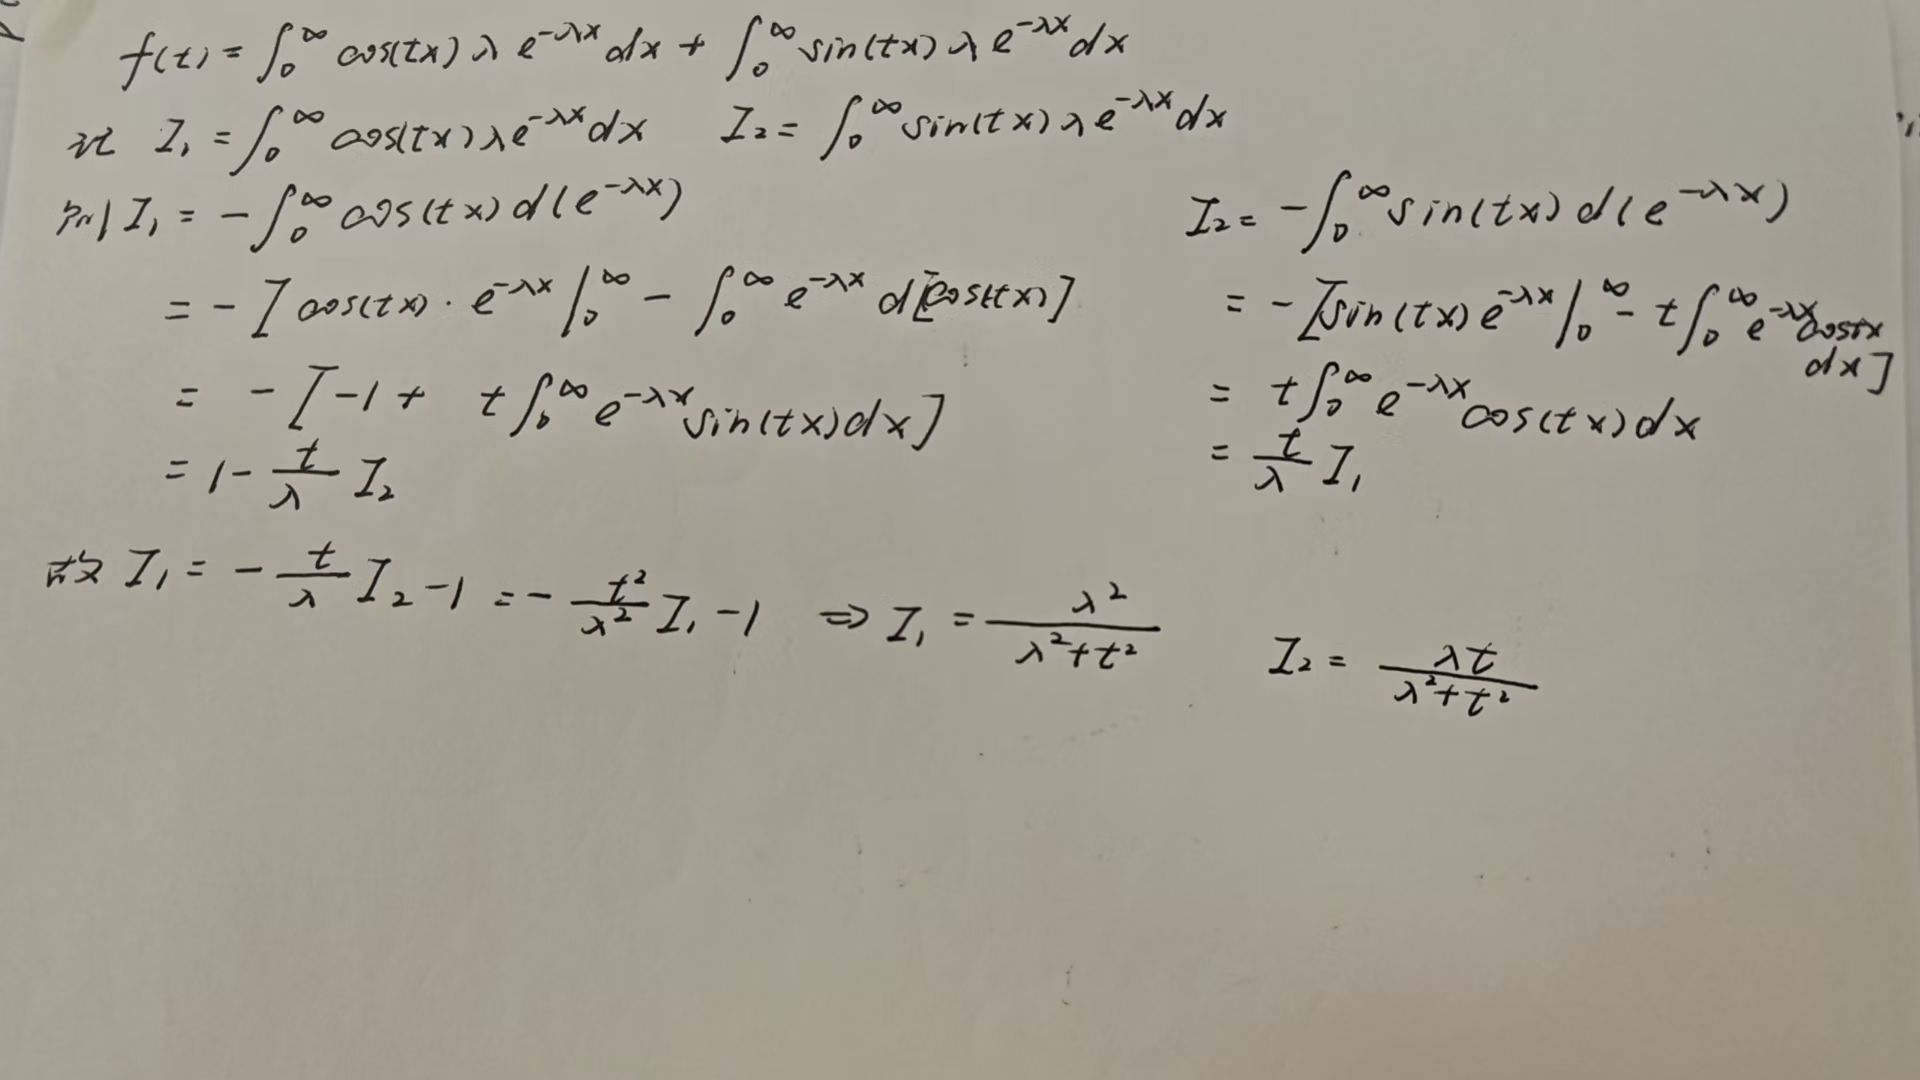 f(t) = ∫₀^∞ cos(tx) λ e^{-λx} dx + ∫₀^∞ sin(tx) λ e^{-λx} dx
记 I₁ = ∫₀^∞ cos(tx) λ e^{-λx} dx I₂ = ∫₀^∞ sin(tx) λ e^{-λx} dx
则 I₁ = -∫₀^∞ cos(tx) d(e^{-λx})
= -[cos(tx)·e^{-λx}|₀^∞ - ∫₀^∞ e^{-λx} d[cos(tx)]
= -[-1 + t∫₀^∞ e^{-λx} sin(tx) dx]
= 1 - \frac{t}{λ} I₂
I₂ = -∫₀^∞ sin(tx) d(e^{-λx})
= -[sin(tx) e^{-λx}|₀^∞ - t∫₀^∞ e^{-λx} costx dx]
= t∫₀^∞ e^{-λx} cos(tx) dx
= \frac{t}{λ} I₁
故 I₁ = -\frac{t}{λ} I₂ - 1 = -\frac{t²}{λ²} I₁ - 1 ⇒ I₁ = \frac{λ²}{λ²+t²} I₂ = \frac{λt}{λ²+t²}